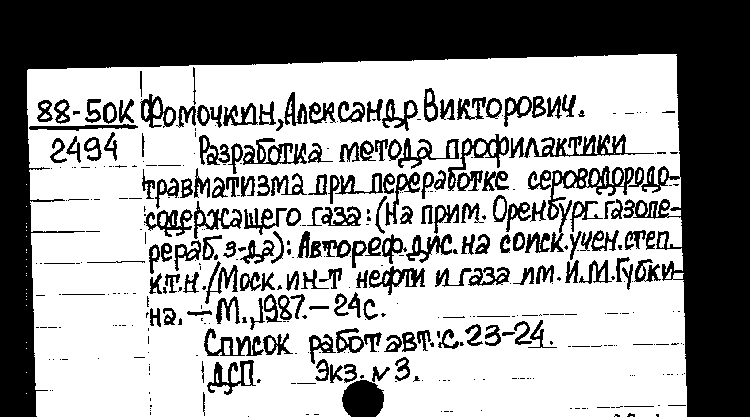 88-50К Фомочкин, Александр Викторович.
2494 Разработка метода профилактики
травматизма при переработке сероводородо-
содержащего газа: (На прим. Оренбург. газопе-
рераб. з-да): Автореф. дис. на соиск. учен. степ.
к.т.н. /Моск. ин-т нефти и газа им. И.М. Губки-
на. — М., 1987. — 24с.
Список работ авт.: с. 23-24.
ДСП. Экз. № 3.